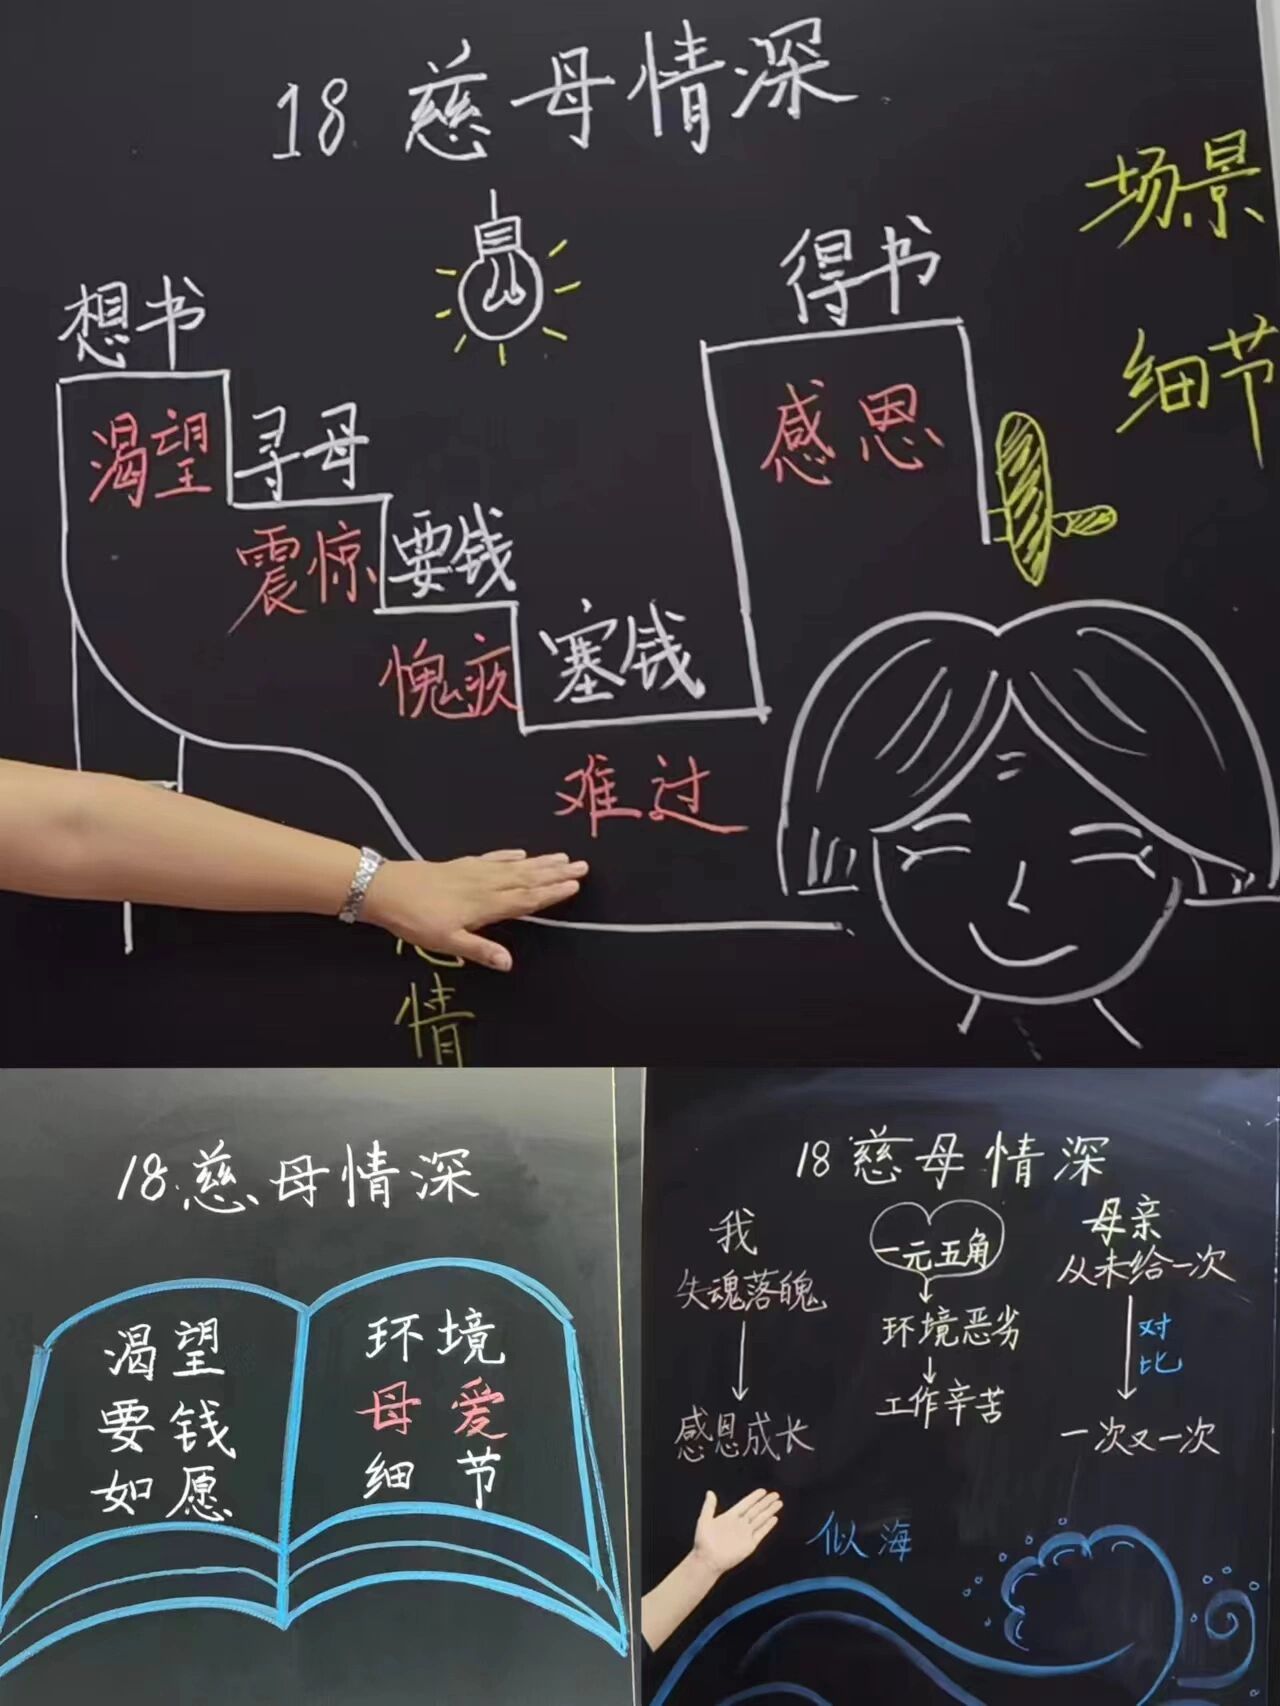 18 慈母情深
场景
细节
想书
得书
渴望
寻母
感恩
震惊
要钱
愧疚
塞钱
难过
情
18.慈母情深
渴望
要钱
如愿
环境
母爱
细节
18 慈母情深
我
失魂落魄
感恩成长
一元五角
环境恶劣
工作辛苦
母亲
从未给一次
对比
一次又一次
似海